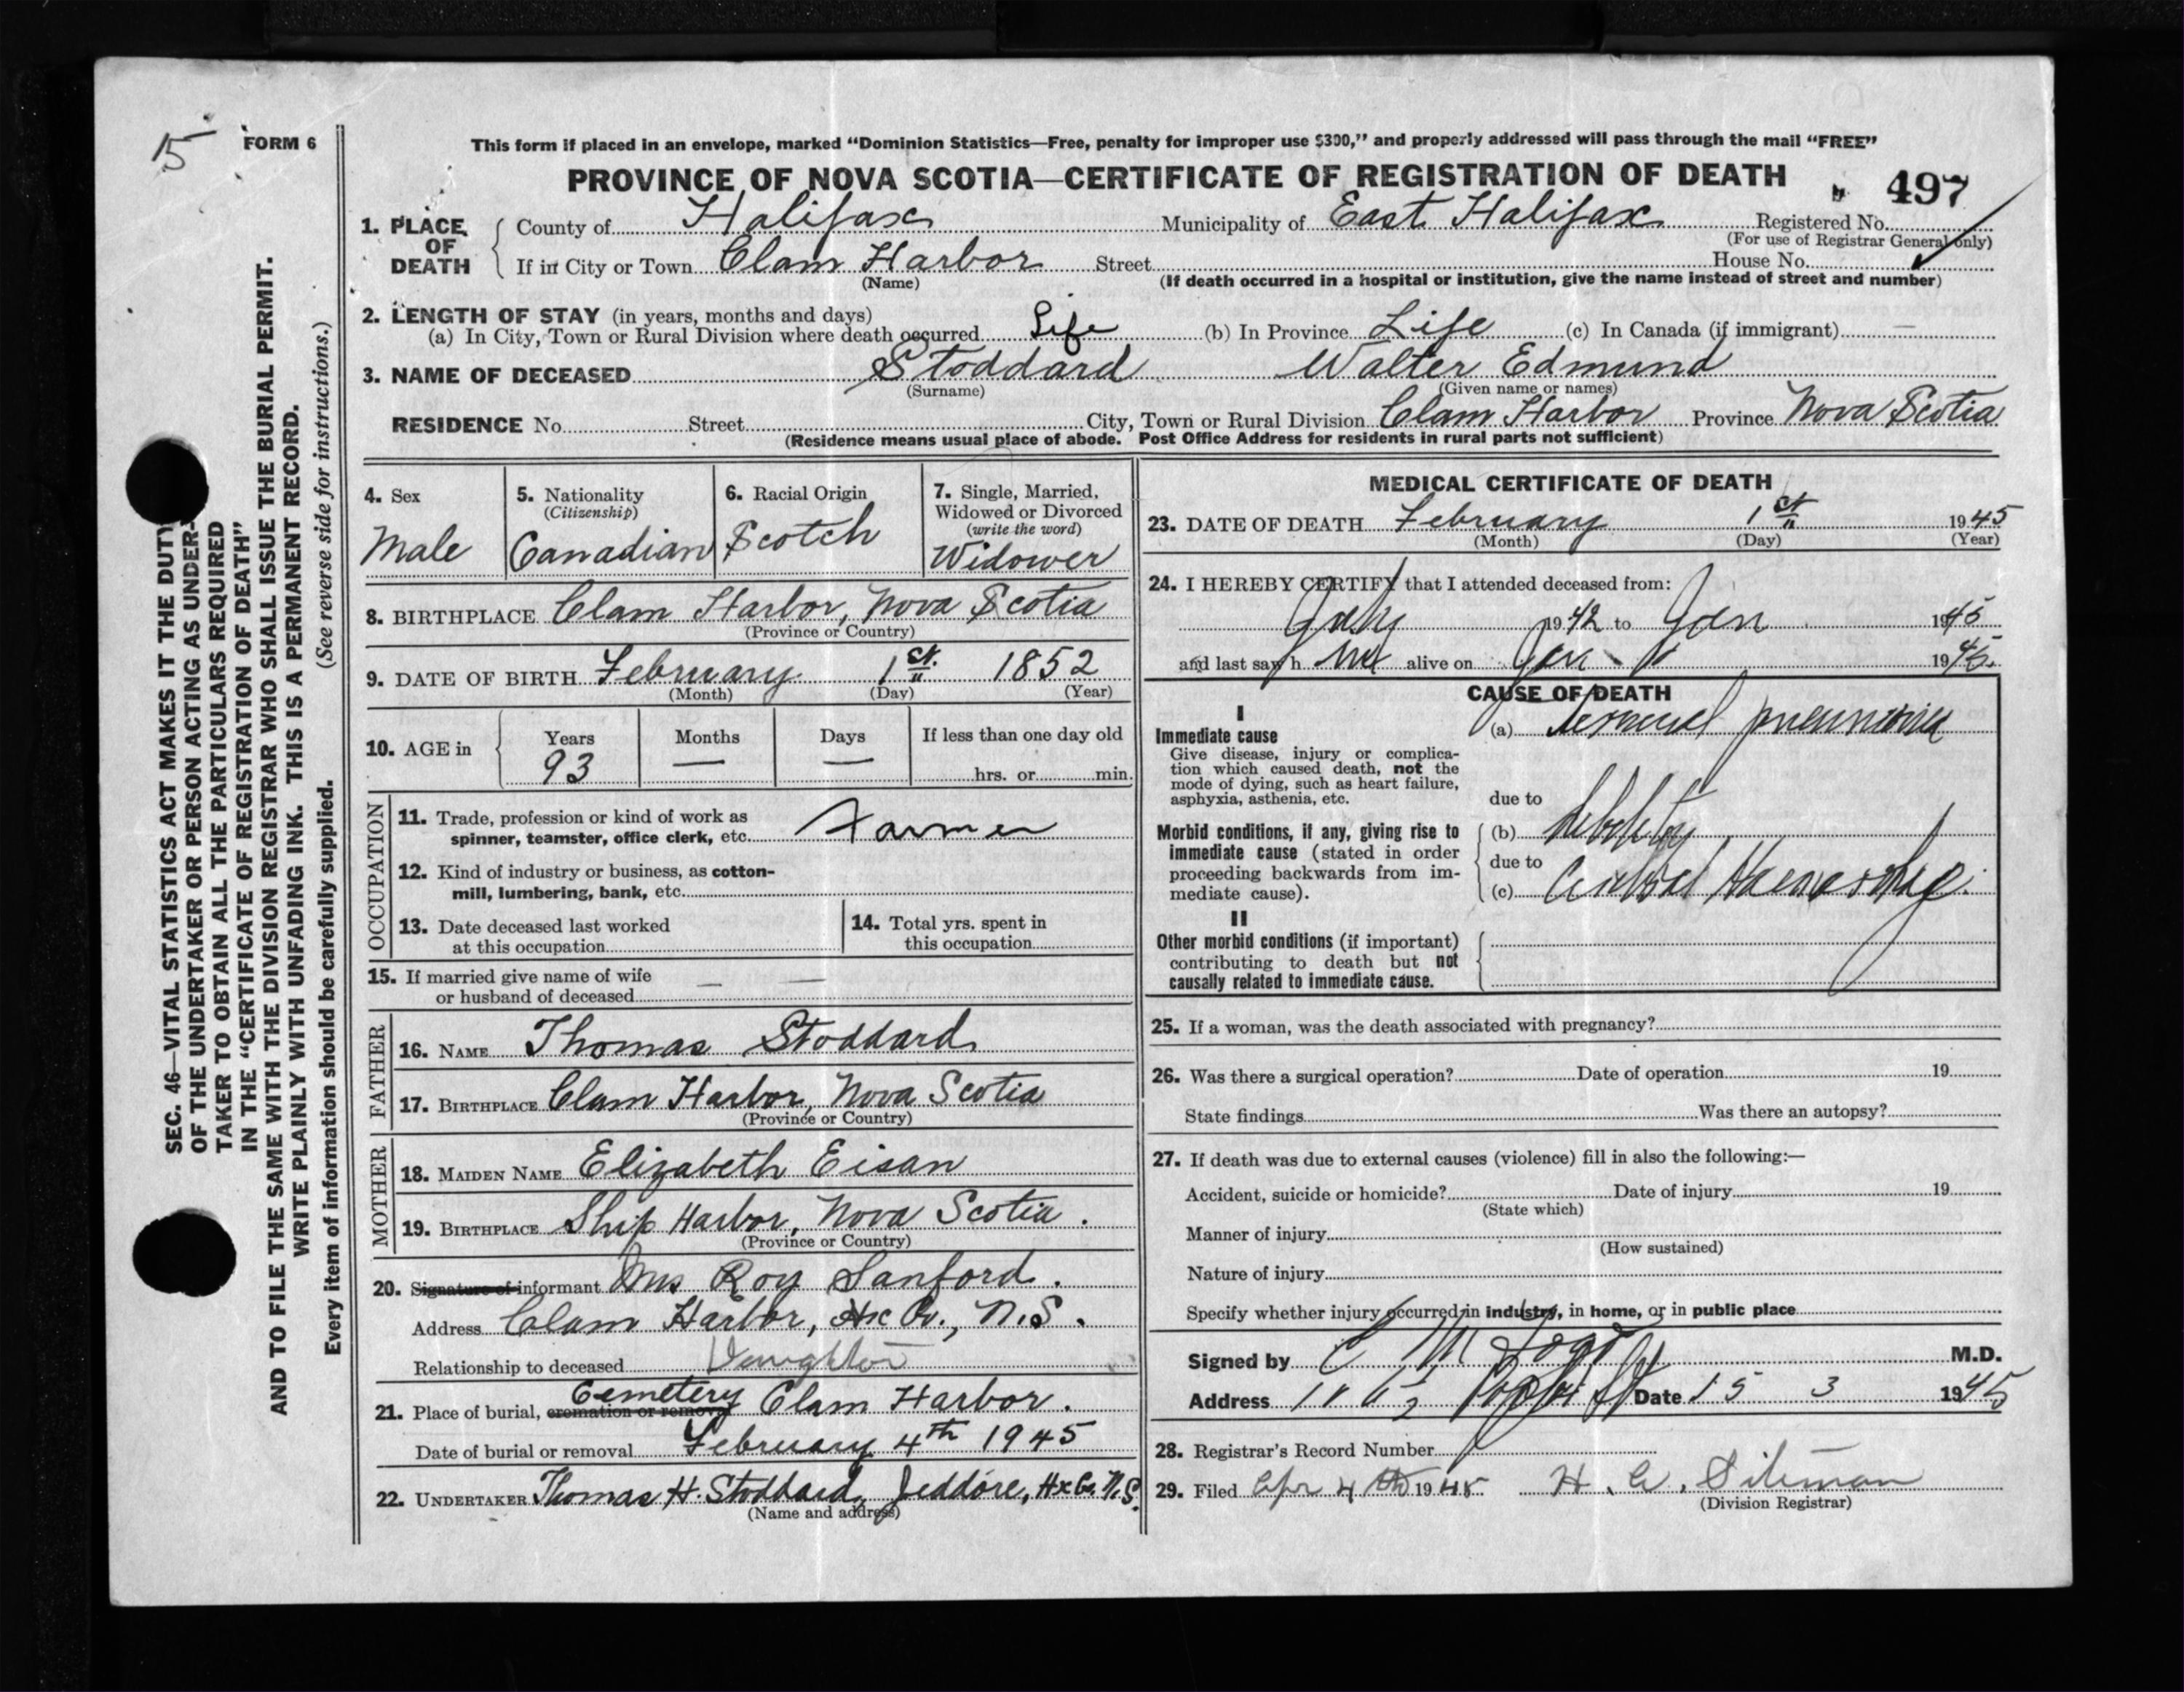 15
FORM 6
SEC. 46—VITAL STATISTICS ACT MAKES IT THE DUTY
OF THE UNDERTAKER OR PERSON ACTING AS UNDER-
TAKER TO OBTAIN ALL THE PARTICULARS REQUIRED
IN THE "CERTIFICATE OF REGISTRATION OF DEATH"
AND TO FILE THE SAME WITH THE DIVISION REGISTRAR WHO SHALL ISSUE THE BURIAL PERMIT.
WRITE PLAINLY WITH UNFADING INK. THIS IS A PERMANENT RECORD.
Every item of information should be carefully supplied. (See reverse side for instructions.)
This form if placed in an envelope, marked "Dominion Statistics—Free, penalty for improper use $300," and properly addressed will pass through the mail "FREE"
PROVINCE OF NOVA SCOTIA—CERTIFICATE OF REGISTRATION OF DEATH
497
1. PLACE OF DEATH
County of Halifax Municipality of East Halifax Registered No.
(For use of Registrar General only)
If in City or Town Clam Harbor Street House No.
(Name) (If death occurred in a hospital or institution, give the name instead of street and number)
2. LENGTH OF STAY (in years, months and days)
(a) In City, Town or Rural Division where death occurred Life (b) In Province Life (c) In Canada (if immigrant) —
3. NAME OF DECEASED Stoddard Walter Edmund
(Surname) (Given name or names)
RESIDENCE No. Street City, Town or Rural Division Clam Harbor Province Nova Scotia
(Residence means usual place of abode. Post Office Address for residents in rural parts not sufficient)
4. Sex
Male
5. Nationality
(Citizenship)
Canadian
6. Racial Origin
Scotch
7. Single, Married,
Widowed or Divorced
(write the word)
Widower
8. BIRTHPLACE Clam Harbor, Nova Scotia
(Province or Country)
9. DATE OF BIRTH February 1st. 1852
(Month) (Day) (Year)
10. AGE in
Years Months Days If less than one day old
93 — — hrs. or min.
OCCUPATION
11. Trade, profession or kind of work as
spinner, teamster, office clerk, etc. Farmer
12. Kind of industry or business, as cotton-
mill, lumbering, bank, etc.
13. Date deceased last worked
at this occupation
14. Total yrs. spent in
this occupation
15. If married give name of wife
or husband of deceased — —
FATHER
16. NAME Thomas Stoddard
17. BIRTHPLACE Clam Harbor, Nova Scotia
(Province or Country)
MOTHER
18. MAIDEN NAME Elizabeth Eisan
19. BIRTHPLACE Ship Harbor, Nova Scotia.
(Province or Country)
20. Signature of informant Mrs Roy Sanford.
Address Clam Harbor, Hx Co., N.S.
Relationship to deceased Daughter
Cemetery
21. Place of burial, cremation or removal Clam Harbor.
Date of burial or removal February 4th 1945
22. UNDERTAKER Thomas H. Stoddard, Jeddore, Hx Co. N.S.
(Name and address)
MEDICAL CERTIFICATE OF DEATH
23. DATE OF DEATH February 1st 1945
(Month) (Day) (Year)
24. I HEREBY CERTIFY that I attended deceased from:
July 1942 to Jan 1945
and last saw h im alive on Jan 1945
CAUSE OF DEATH
I
Immediate cause
Give disease, injury or complica-
tion which caused death, not the
mode of dying, such as heart failure,
asphyxia, asthenia, etc.
(a) Terminal pneumonia
due to
Morbid conditions, if any, giving rise to
immediate cause (stated in order
proceeding backwards from im-
mediate cause).
(b) debility
due to
(c) Cerebral Hemorrhage.
II
Other morbid conditions (if important)
contributing to death but not
causally related to immediate cause.
25. If a woman, was the death associated with pregnancy?
26. Was there a surgical operation? Date of operation 19
State findings Was there an autopsy?
27. If death was due to external causes (violence) fill in also the following:—
Accident, suicide or homicide? Date of injury 19
(State which)
Manner of injury
(How sustained)
Nature of injury
Specify whether injury occurred in industry, in home, or in public place
Signed by C M M.D.
Address Date 15 3 1945
28. Registrar's Record Number
29. Filed Apr 4th 1945 H. A. Siteman
(Division Registrar)